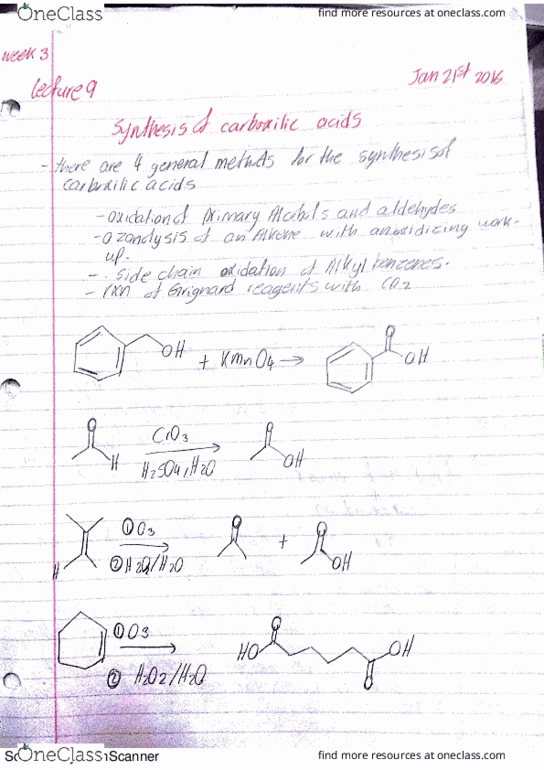 OneClass
find more resources at oneclass.com
week 3
lecture 9
Jan 21st 2016
Synthesis of carboxilic acids
- there are 4 general methods for the synthesis of
carboxilic acids
- oxidation of primary Alcohols and aldehydes
- ozonolysis of an Alkene with an oxidizing work-
up.
- side chain oxidation of Alkyl benzenes.
- rxn of Grignard reagents with CO2
OH + KmnO4 → O OH
O H CrO3 H2SO4, H2O O OH
H ① O3 ② H2O2/H2O O + O OH
① O3 ② H2O2/H2O HO O OH O
OneClass
Scanner
find more resources at oneclass.com